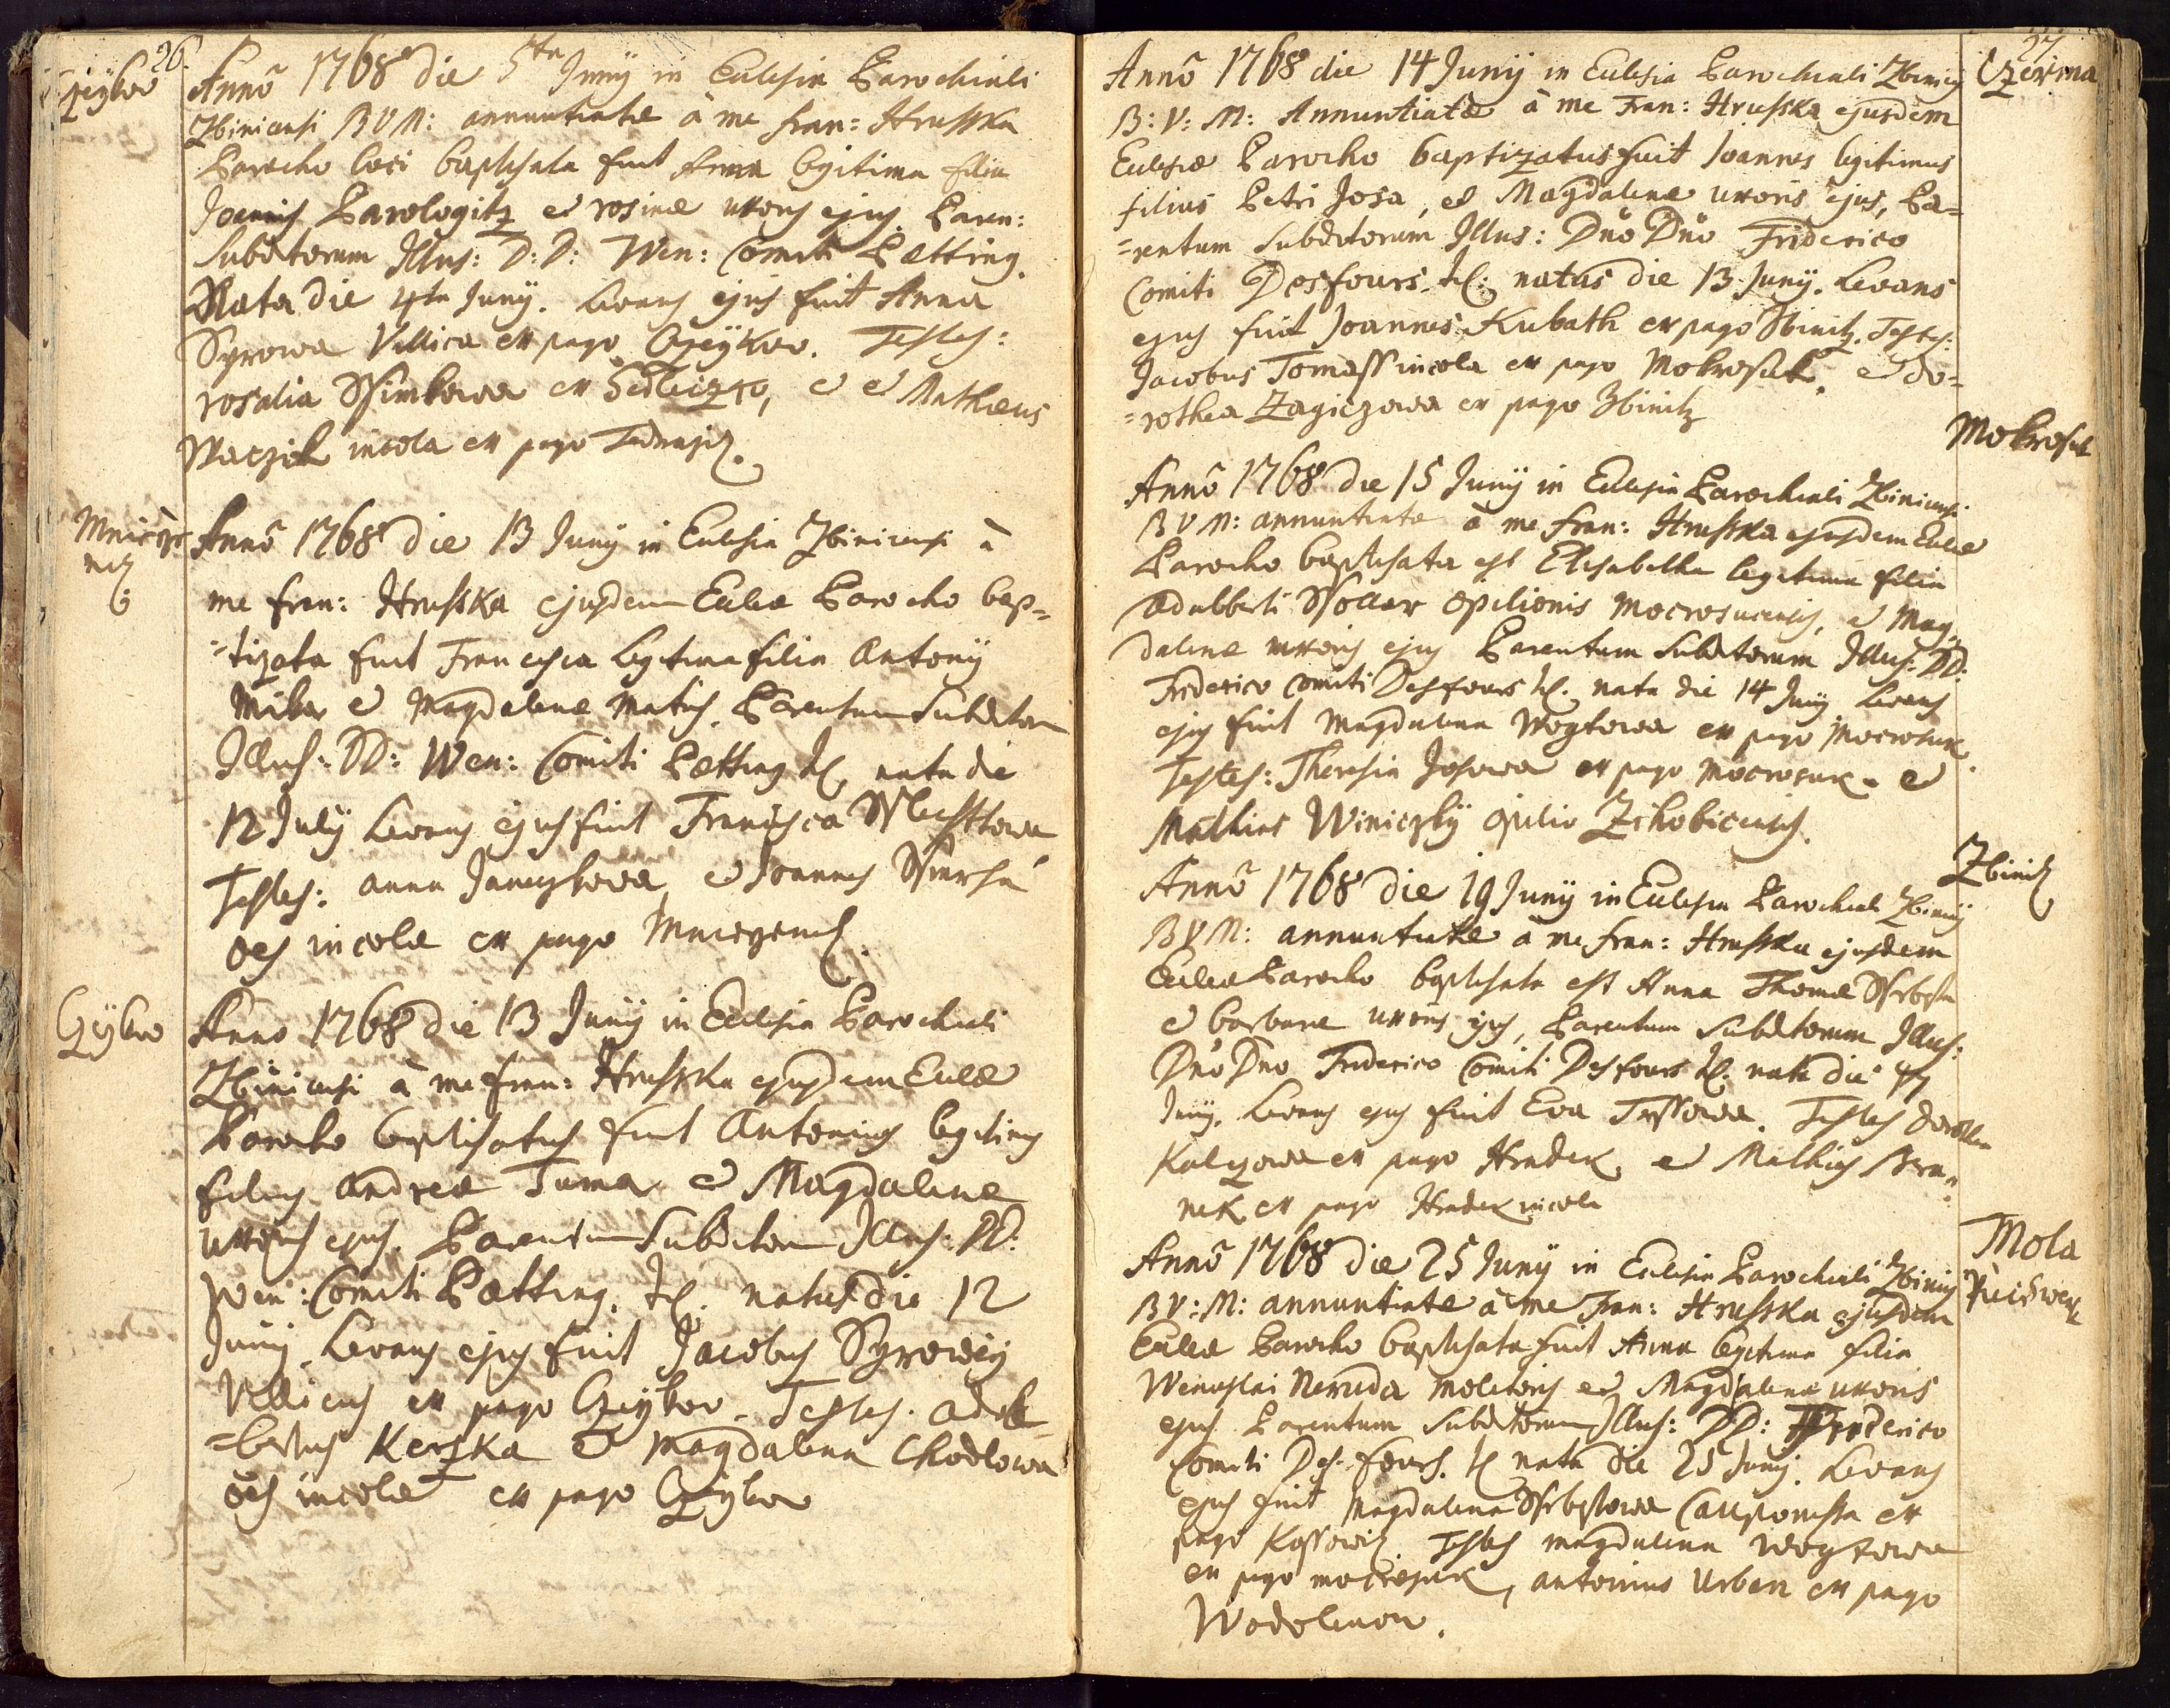 26.
Czeykow
Annô 1768 die 5ta Junÿ in Ecclesia Parochiali
Zbinicensi B V M: annuntiatæ â me Fran: Hrusska
Parocho loci baptisata fuit Anna legitima filia
Joannis et rosinæ uxoris ejus. Paren:
Subditorum Illus: D: D: Wen: Comiti Pætting.
Nata die 4ta Junÿ. Levans ejus fuit Anna
Syrowa Villica ex pago Czeÿkow. Testes:
rosalia Ssimkowa ex Sedleczko, et Mathæus
incola ex pago
Annô 1768 die 13 Junÿ in Ecclesia Zbinicensi â
me Fran: Hrusska ejusdem Eccliæ Parocho bap=
=tizata fuit Francisca legitima filia Antonÿ
Mika et Magdalenæ Matris. Parentum Subditorum
Illus: DD: Wen: Comiti Pætting nata die
12 Julÿ Levans ejus fuit Francisca
Testes: anna et Joannes
oes incolæ ex pago
Czÿkow
Anno 1768 die 13 Junÿ in Ecclesia Parochiali
Zbinicensi â me Fran: Hrusska ejusdem Eccliæ
Parocho baptisatus fuit Antonius legitimus
filius Andreæ Tuma et Magdalenæ
uxoris ejus. Parentum Subditorum Illus: DD:
Wen: Comiti Pætting. natus die 12
Junÿ. Levans ejus fuit Jacobus Syrowÿ
Villicus ex pago Czeÿkow. Testes. Adal=
=bertus Kerzka et Magdalena Chodlowa
oes incolæ ex pago Czÿkow
27
Czerma
Annô 1768 die 14 Junÿ in Ecclesia Parochiali
B: V: M: Annuntiatæ â me Fran: Hrusska ejusdem
Ecclesiæ Parocho baptizatus fuit Joannes legitimus
filius Petri Josa, et Magdalenæ uxoris ejus, Pa=
=rentum Subditorum Illus: Dño Dño Friderico
Comiti Desfours. natus die 13 Junÿ. Levans
ejus fuit Joannes Kubath ex pago Zbinitz. Testes:
Jacobus Tomass incola ex pago Mokrosuk. et do=
=rothea Zagiczowa ex pago Zbinitz
Mokrosuk
Annô 1768 die 15 Junÿ in Ecclesia Parochiali Zbinicensi
B V M: annuntiatæ â me Fran: Hrusska ejusdem Eccliæ
Parocho baptisata est Elisabetha legitima filia
Adalberti opilionis Mocrosucensis, et Mag
dalenæ uxoris ejus Parentum Subditorum Illus: DD:
Friderico Comiti Desfours. nata die 14 Junÿ Levans
ejus fuit Magdalena Wogtowa ex pago Mocrosuk.
Testes: Theresia Josowa ex pago Mocrosuk. et
Mathias Winiczkÿ opilio
Zbinitz
Annô 1768 die 19 Junÿ in Ecclesia Parochiali
B V M: annuntiatæ â me Fran: Hrusska ejusdem
Eccliæ Parocho baptisata est Anna Thomæ
et barbaræ uxoris ejus, Parentum Subditorum Illus:
Dño Dño Friderico Comiti Desfours. nata die
Junÿ. Levans ejus fuit Eva. Testes dorothea
ex pago Hradek et Mathias Bra=
nek ex pago Hradek incola
Mola
Annô 1768 die 25 Junÿ in Ecclesia Parochiali
B V: M: annuntiatæ â me Fran: Hrusska ejusdem
Eccliæ Parocho baptisata fuit Anna legitima filia
Wenceslai Neruda Molitoris et Magdalenæ uxoris
ejus Parentum Subditorum Illus: DD: Friderico
Comiti Des-fours. nata die 25 Junÿ. Levans
ejus fuit Magdalena ex
pago Kossowitz. Testes Magdalena Wogtowa
ex pago mocrosuk, antonius Urban ex pago
Wodolenow.